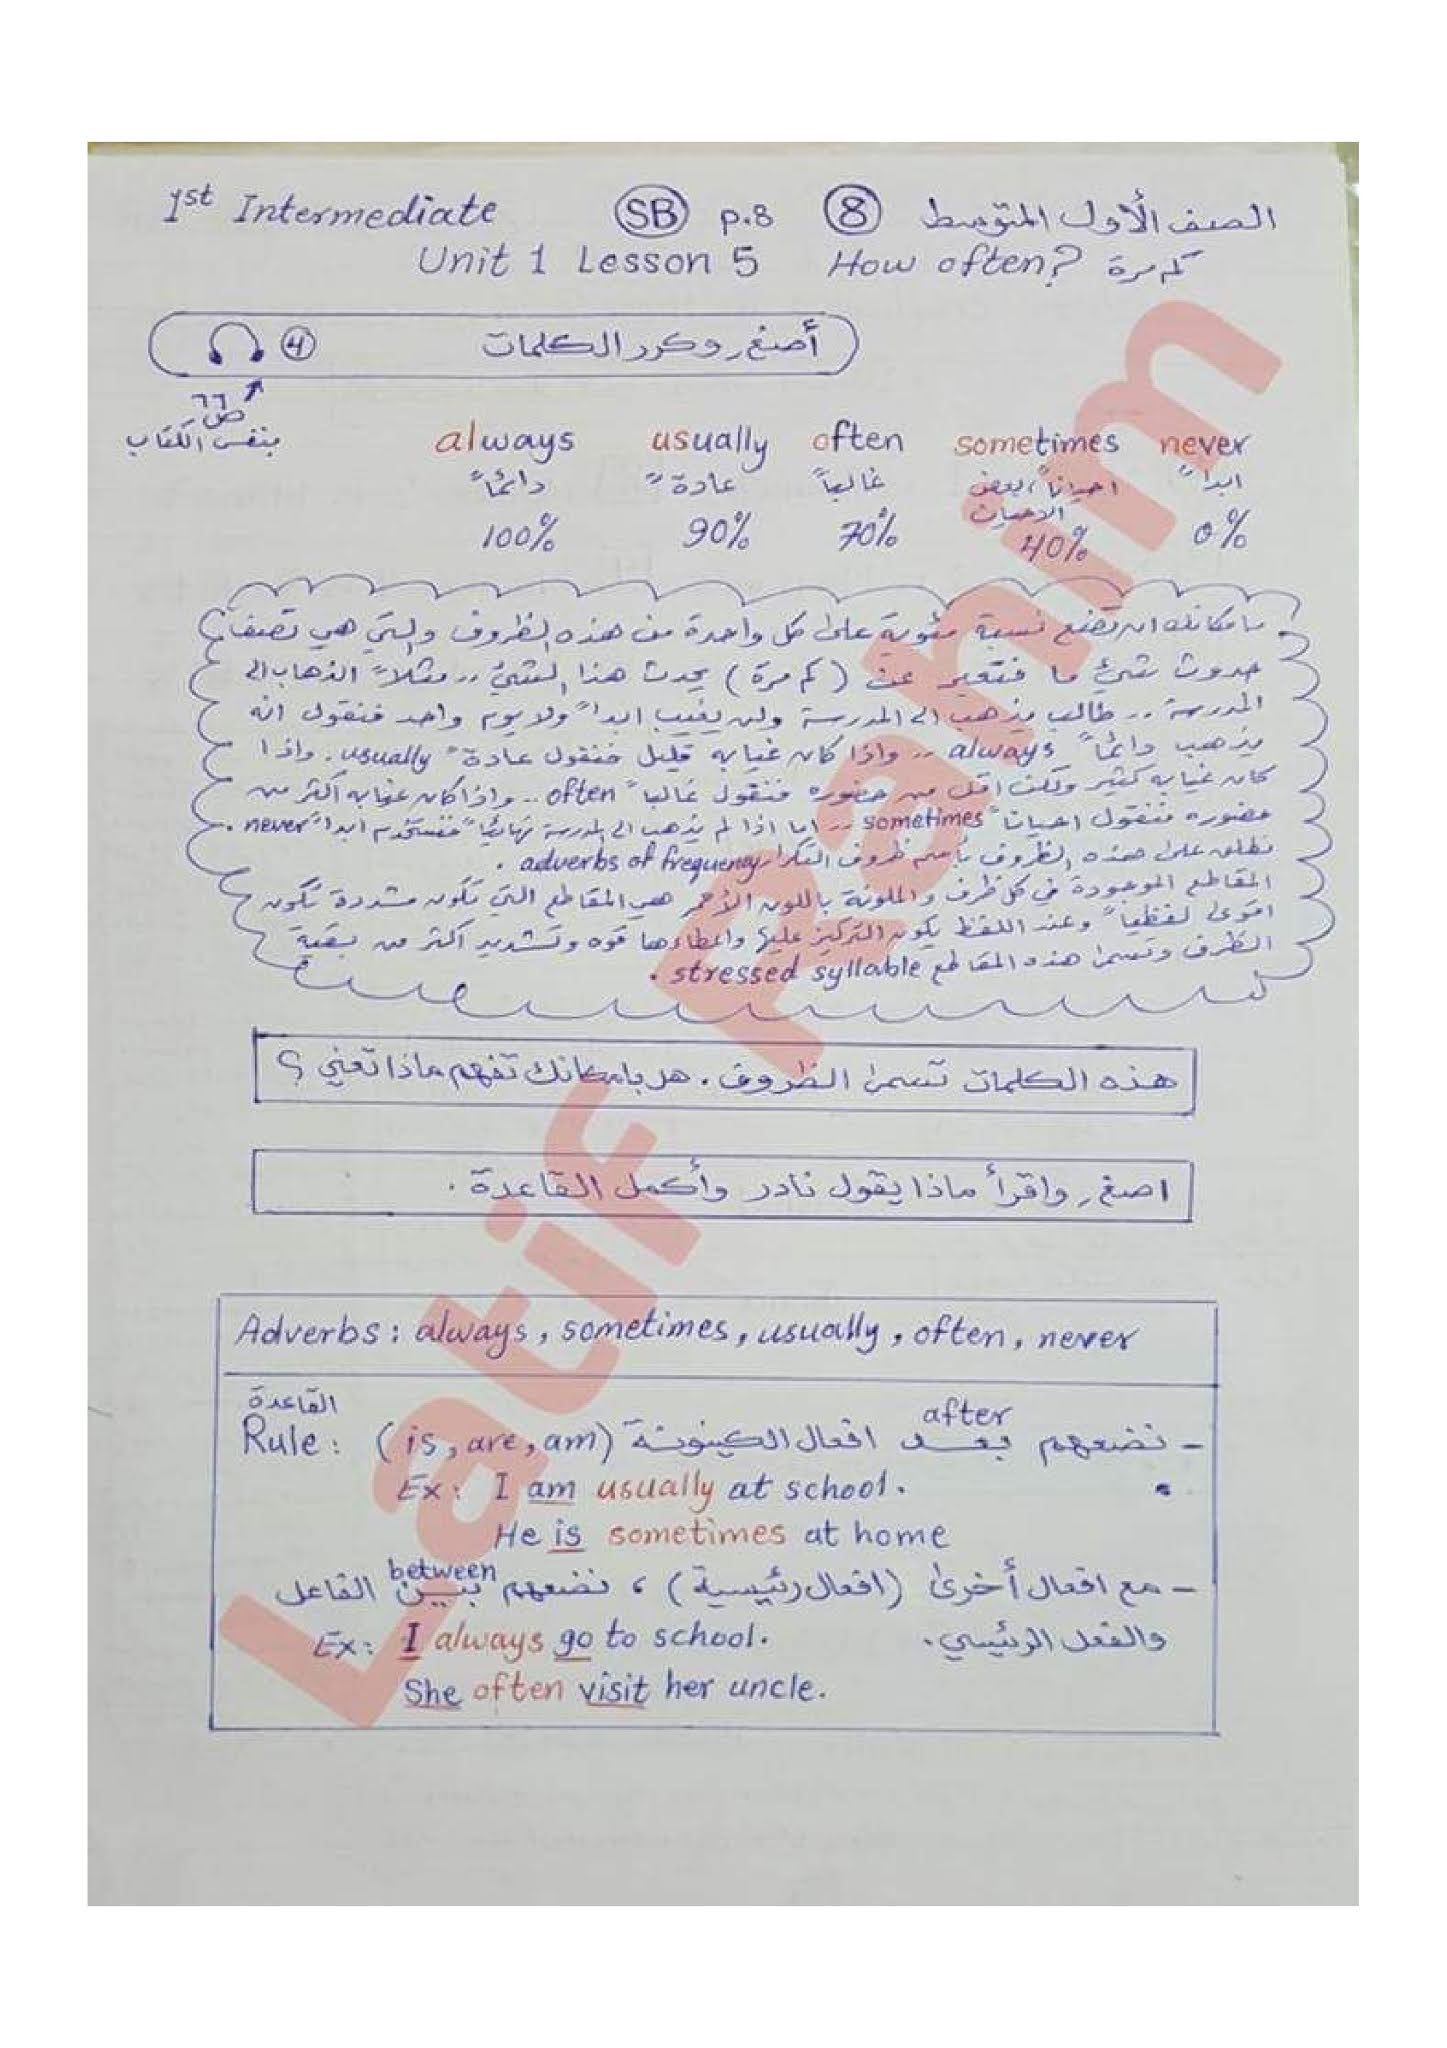 1st Intermediate SB p.8 8 الصف الأول المتوسط
Unit 1 Lesson 5 How often? كم مرة
أصغِ وكرر الكلمات 4
ص ٦٦
بنفس الكتاب
always usually often sometimes never
دائماً عادةً غالباً احياناً، بعض الاحيان ابداً
100% 90% 70% 40% 0%
بامكانك ان تضع نسبة مئوية على كل واحدة من هذه الظروف والتي هي تصف
حدوث شيء ما فتعبر عن (كم مرة) يحدث هذا الشيء .. مثلاً الذهاب الى
المدرسة .. طالب يذهب الى المدرسة ولن يغيب ابداً ولا يوم واحد فنقول انه
يذهب دائماً always .. واذا كان غيابه قليل فنقول عادةً usually. واذا
كان غيابه كثير ولكن اقل من حضوره فنقول غالباً often .. واذا كان غيابه اكثر من
حضوره فنقول احياناً sometimes .. اما اذا لم يذهب الى المدرسة نهائياً فنستخدم ابداً never.
نطلق على هذه الظروف بأسم ظروف التكرار adverbs of frequency.
المقاطع الموجودة في كل ظرف والملونة باللون الأحمر هي المقاطع التي تكون مشددة تكون
اقوى لفظياً وعند اللفظ يكون التركيز عليها واعطاءها قوه وتشديد اكثر من بقية
الظرف وتسمى هذه المقاطع stressed syllable.
هذه الكلمات تسمى الظروف. هل بامكانك تفهم ماذا تعني؟
اصغِ واقرأ ماذا يقول نادر وأكمل القاعدة.
Adverbs: always, sometimes, usually, often, never
القاعدة
after
Rule: - نضعهم بعد افعال الكينونة (is, are, am)
Ex: I am usually at school.
He is sometimes at home
between
- مع افعال أخرى (افعال رئيسية)، نضعهم بين الفاعل
والفعل الرئيسي.
Ex: I always go to school.
She often visit her uncle.
Latif Rahim